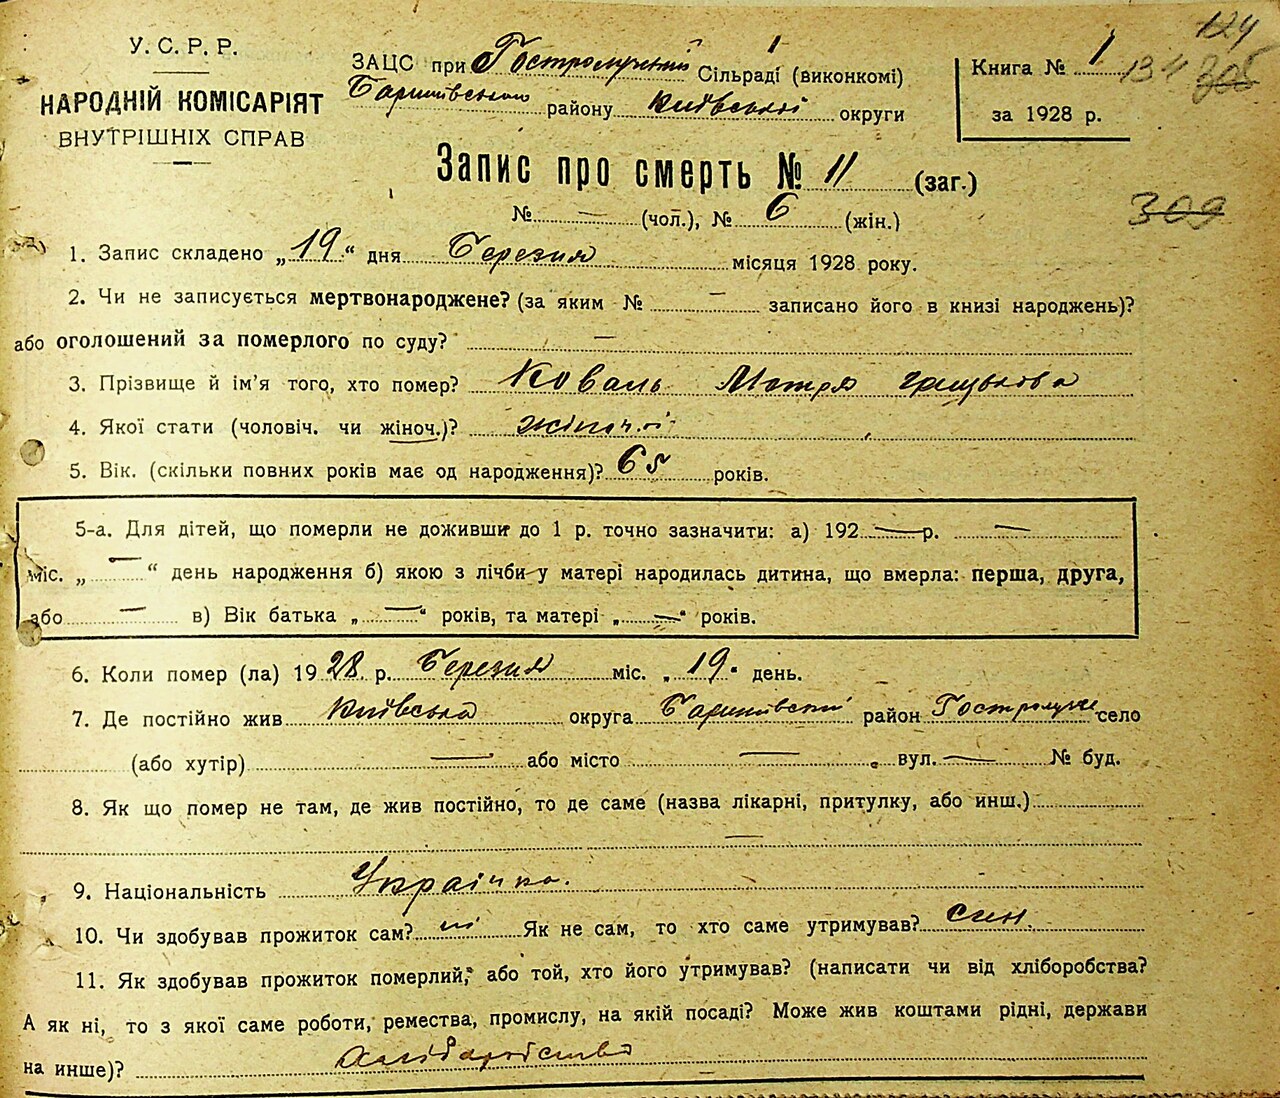 У. С. Р. Р.
НАРОДНІЙ КОМІСАРІЯТ
ВНУТРІШНІХ СПРАВ
ЗАЦС при Гостролучкій Сільраді (виконкомі)
Баришівського району Київської округи
Книга № 1
за 1928 р.
124
134 305
309
Запис про смерть № 11 (заг.)
№ — (чол.), № 6 (жін.)
1. Запис складено „19“ дня Березня місяця 1928 року.
2. Чи не записується мертвонароджене? (за яким № — записано його в книзі народжень)?
або оголошений за померлого по суду? —
3. Прізвище й ім'я того, хто помер? Коваль Мотря грицькова
4. Якої стати (чоловіч. чи жіноч.)? жіночої
5. Вік. (скільки повних років має од народження)? 65 років.
5-а. Для дітей, що померли не доживши до 1 р. точно зазначити: а) 192 — р. —
міс. „ — “ день народження б) якою з лічби у матері народилась дитина, що вмерла: перша, друга,
або — в) Вік батька „ — “ років, та матері „ — “ років.
6. Коли помер (ла) 19 28 р. Березня міс. „ 19 “ день.
7. Де постійно жив Київська округа Баришівський район Гостролуччє село
(або хутір) — або місто — , вул. — № буд.
8. Як що помер не там, де жив постійно, то де саме (назва лікарні, притулку, або инш.)
—
9. Національність Українка.
10. Чи здобував прожиток сам? ні Як не сам, то хто саме утримував? син.
11. Як здобував прожиток померлий, або той, хто його утримував? (написати чи від хліборобства?
А як ні, то з якої саме роботи, ремества, промислу, на якій посаді? Може жив коштами рідні, держави
на инше)? хліборобство